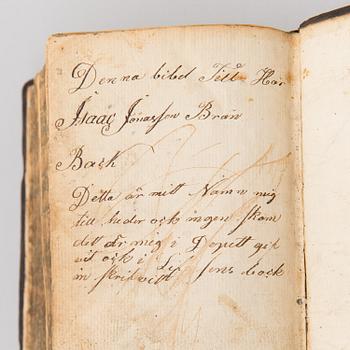 Denna bibel Till Hör
Isaac Jonasson Brån
Back
Detta är mitt Namn mig
till heder och ingen skam
det är mig i Dopett gif
vit och i Lif sens bock
in skrivitt